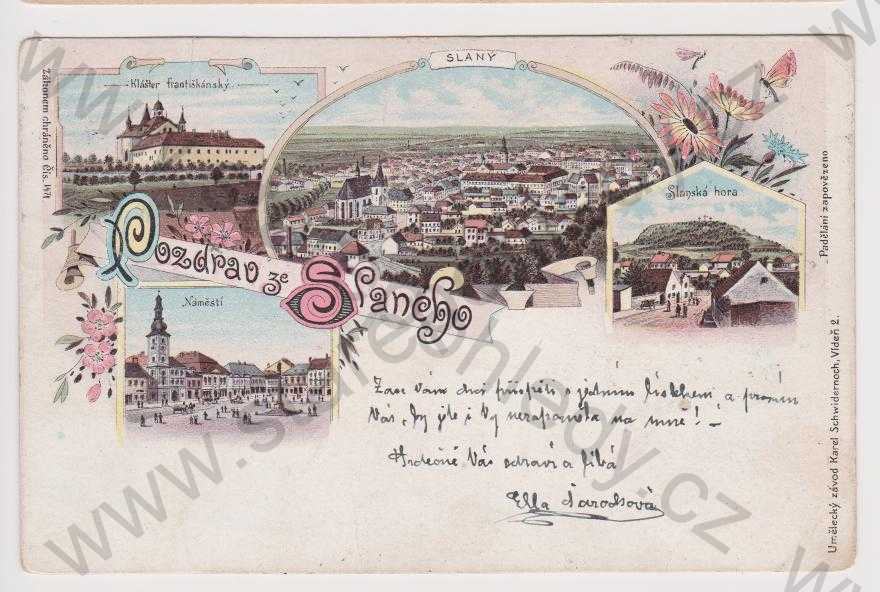 SLANÝ
Klášter františkánský
Zákonem chráněno Čís.
Slanská hora
Padělání zapovězeno
Pozdrav ze Slaného
Náměstí
Zase Vám dnes s jedním a prosím
Vás, by jste i Vy na mně! –
Srdečně Vás zdraví a líbá
Ella
Umělecký závod Karel Schwidernoch, Vídeň 2.
www.starepohledy.cz